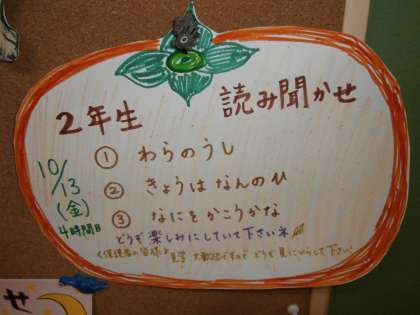 2年生 読み聞かせ
① わらのうし
② きょうはなんのひ
③ なにをかこうかな
10/13
(金)
4時間目
どうぞ楽しみにしていて下さいネ
《保護者の皆様》見学 大歓迎ですので どうぞ 見にいらして下さい
せ